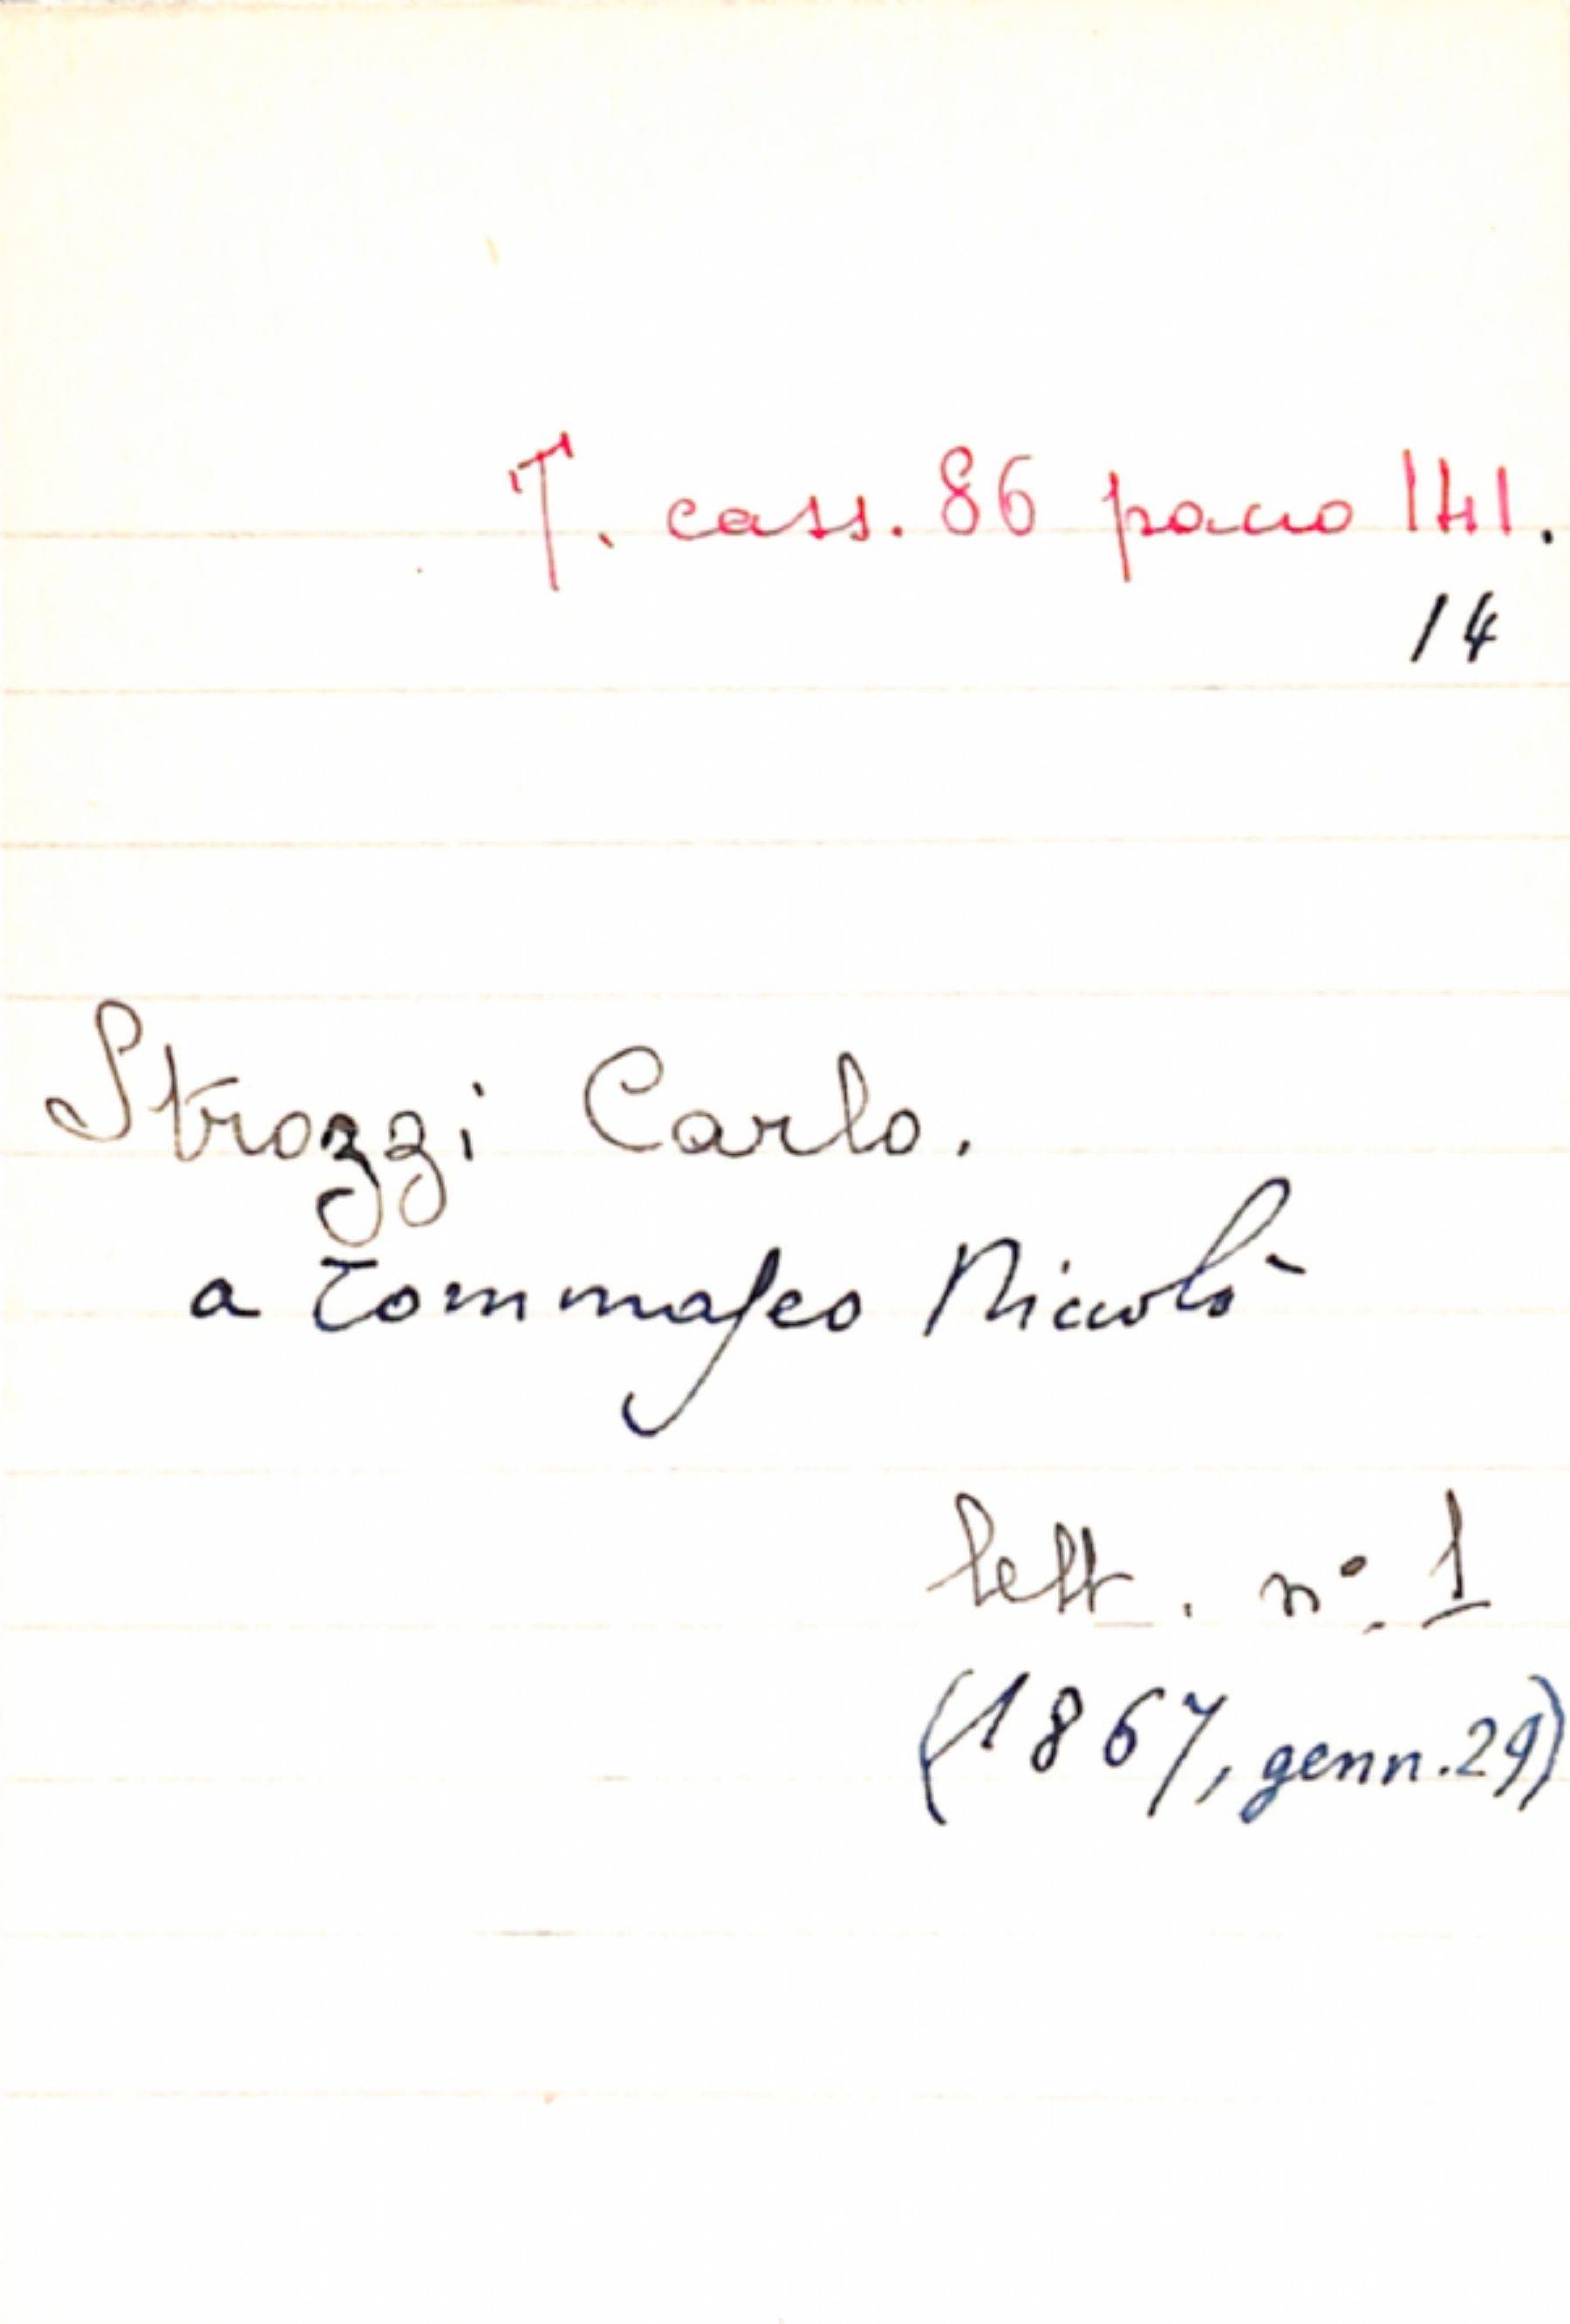 T. cass. 86 pacco 141.
14
Strozzi Carlo.
a Tommaseo Niccolò
lett. n°. 1
(1867, genn. 29)